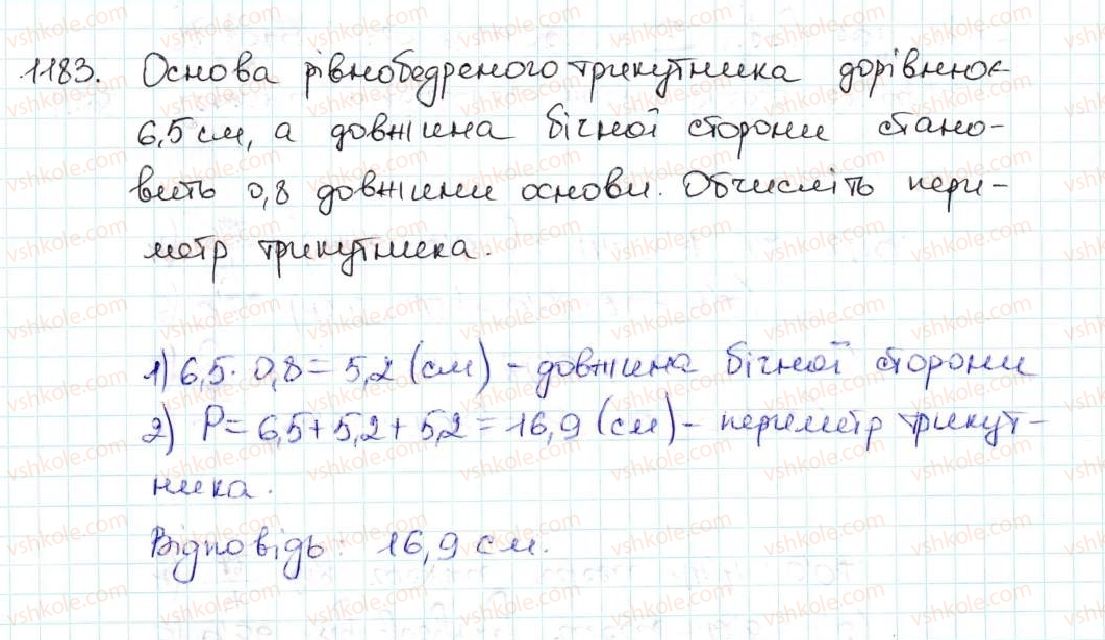 1183. Основа рівнобедреного трикутника дорівнює
6,5 см, а довжина бічної сторони стано-
вить 0,8 довжини основи. Обчисліть пери-
метр трикутника.
1) 6,5 · 0,8 = 5,2 (см) - довжина бічної сторони
2) P = 6,5 + 5,2 + 5,2 = 16,9 (см) - периметр трикут-
ника.
Відповідь: 16,9 см.